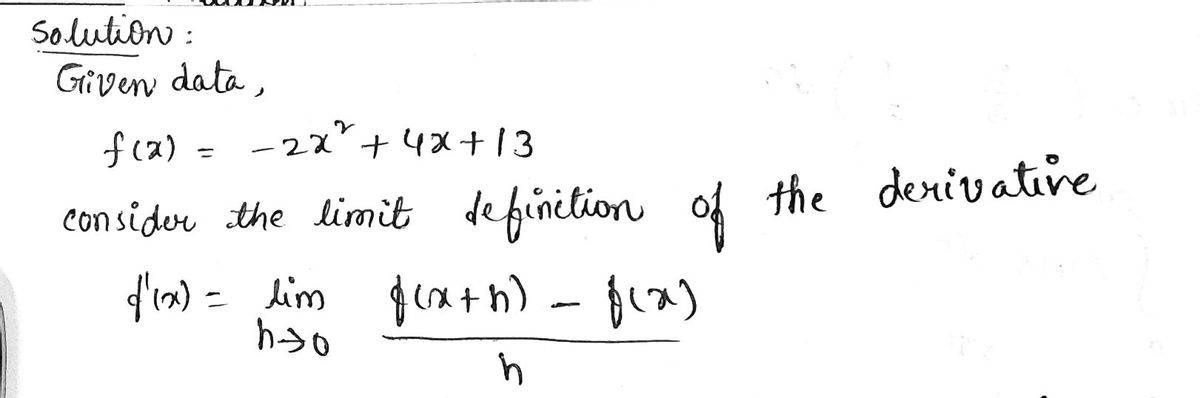 Solution :
Given data,
f(x) = -2x² + 4x + 13
consider the limit definition of the derivative
f'(x) = lim f(x+h) - f(x)
h→0 h